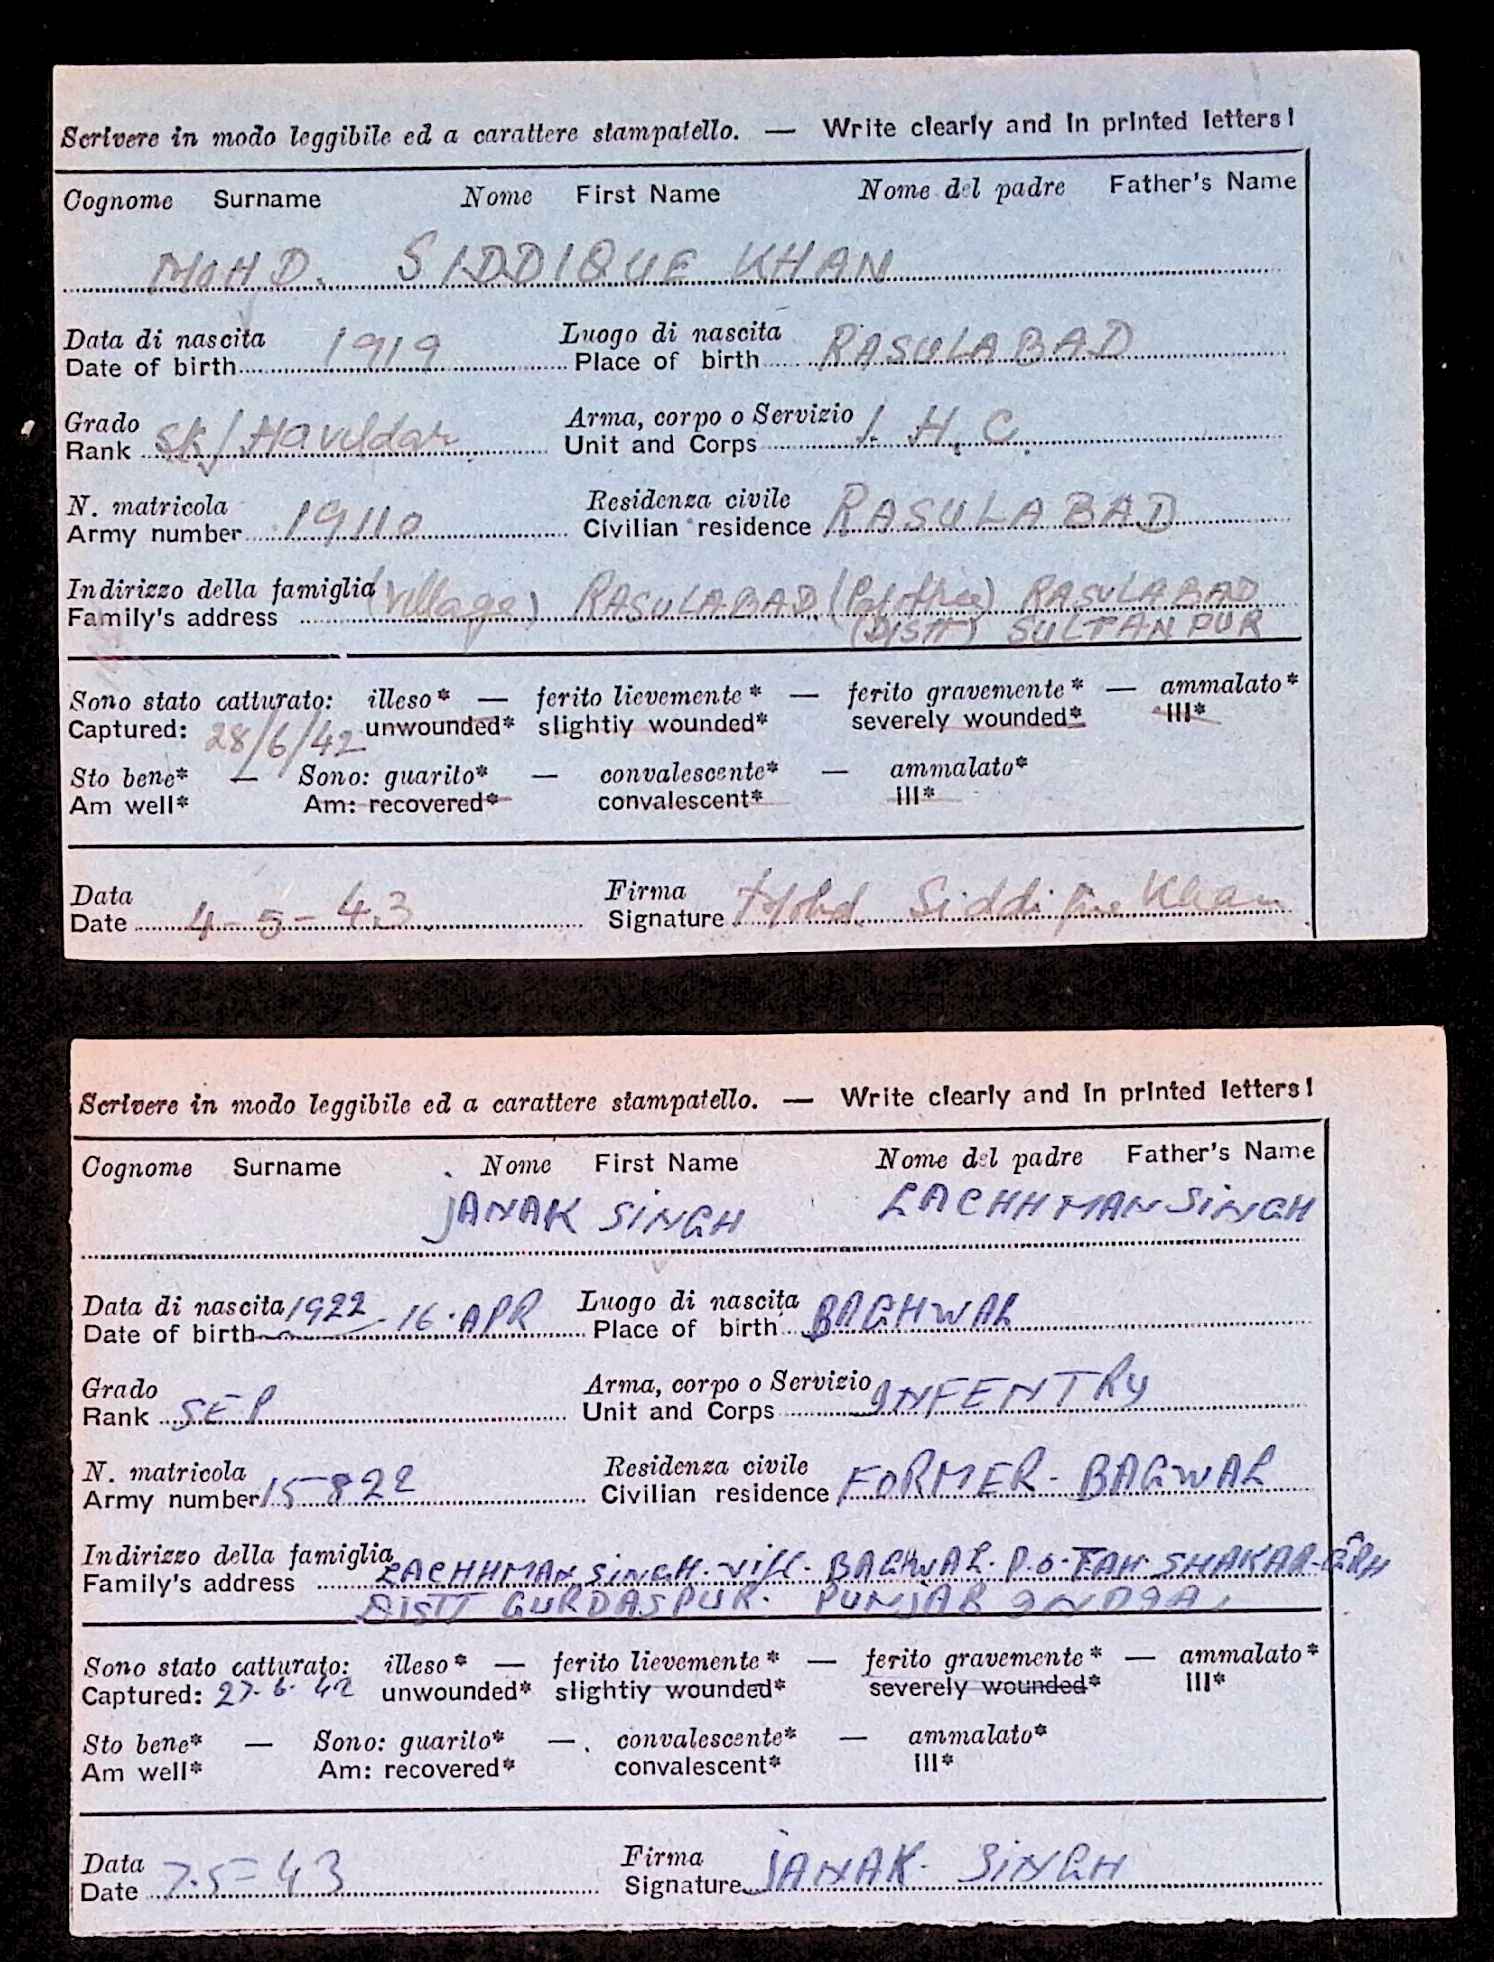 Scrivere in modo leggibile ed a carattere stampatello. — Write clearly and in printed letters!
Cognome Surname Nome First Name Nome del padre Father's Name
MOHD. SIDDIQUE KHAN
Data di nascita 1919 Luogo di nascita RASULABAD
Date of birth Place of birth
Grado Sk/Havildar Arma, corpo o Servizio I. H. C.
Rank Unit and Corps
N. matricola 19110 Residenza civile RASULABAD
Army number Civilian residence
Indirizzo della famiglia (Village) RASULABAD (Post office) RASULABAD
Family's address (DISTT) SULTANPUR
Sono stato catturato: illeso* — ferito lievemente* — ferito gravemente* — ammalato*
Captured: 28/6/42 unwounded* slightly wounded* severely wounded* Ill*
Sto bene* — Sono: guarito* — convalescente* — ammalato*
Am well* Am: recovered* convalescent* Ill*
Data Firma
Date 4-5-43 Signature Mohd. Siddique Khan
Scrivere in modo leggibile ed a carattere stampatello. — Write clearly and in printed letters!
Cognome Surname Nome First Name Nome del padre Father's Name
JANAK SINGH LACHHMAN SINGH
Data di nascita 1922 16.APR Luogo di nascita BAGHWAL
Date of birth Place of birth
Grado SEP Arma, corpo o Servizio INFENTRY
Rank Unit and Corps
N. matricola 15822 Residenza civile FORMER - BAGWAL
Army number Civilian residence
Indirizzo della famiglia LACHHMAN SINGH. VILL. BAGHWAL. P.O. TAH. SHAKAR-GRH
Family's address DISTT GURDASPUR. PUNJAB INDIA,
Sono stato catturato: illeso* — ferito lievemente* — ferito gravemente* — ammalato*
Captured: 27.6.42 unwounded* slightly wounded* severely wounded* Ill*
Sto bene* — Sono: guarito* — convalescente* — ammalato*
Am well* Am: recovered* convalescent* Ill*
Data Firma
Date 7.5-43 Signature JANAK. SINGH